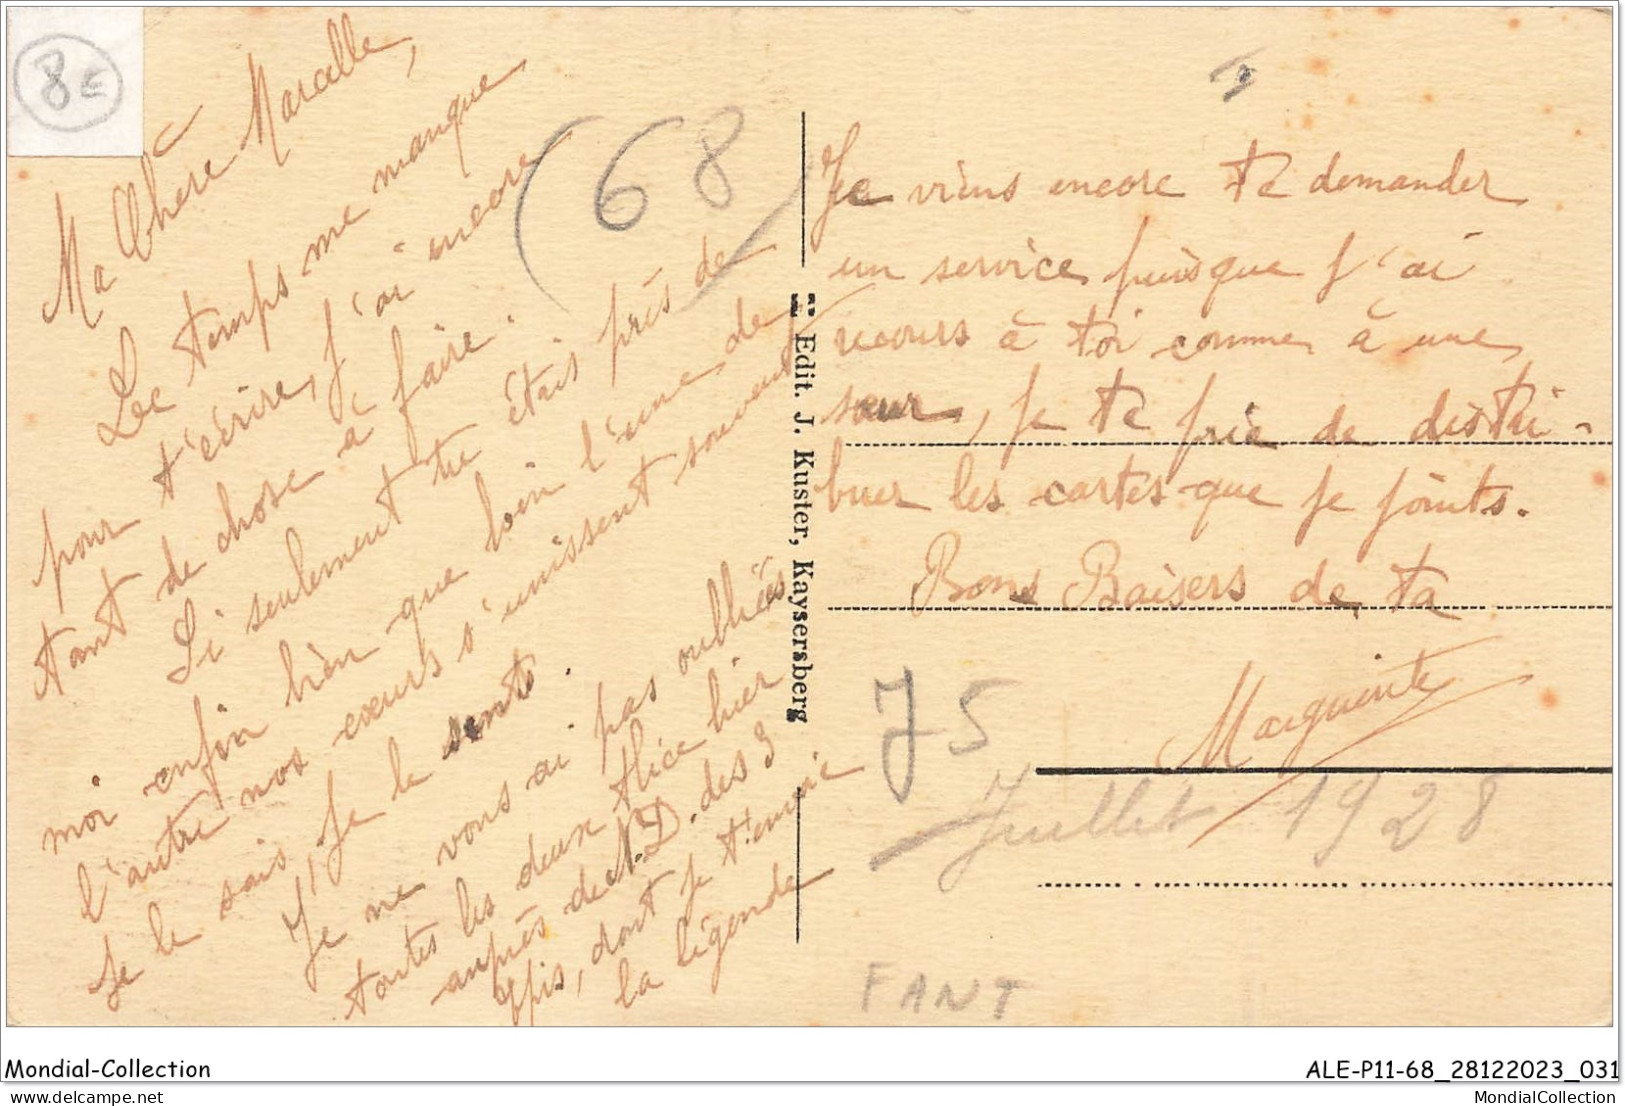 8€
Ma Chère Marcelle,
Le temps me manque
pour t'écrire, j'ai encore
tant de chose à faire.
Si seulement tu étais près de
moi enfin bien que loin l'une de
l'autre nos coeurs s'unissent souvent
je le sais, je le sents.
Je ne vous ai pas oubliées
toutes les deux Alice hier
auprès de N.D. des 3
Epis, dont je t'envoie
la légende
(68)
Edit. J. Kuster, Kaysersberg
Je viens encore te demander
un service puisque j'ai
recours à toi comme à une
sœur, je te prie de distri-
buer les cartes que je joints.
Bons Baisers de ta
Marguerite
J5
Juillet 1928
FANT
Mondial-Collection
ALE-P11-68_28122023_031
Mondial-Collection.com
MondialCollection